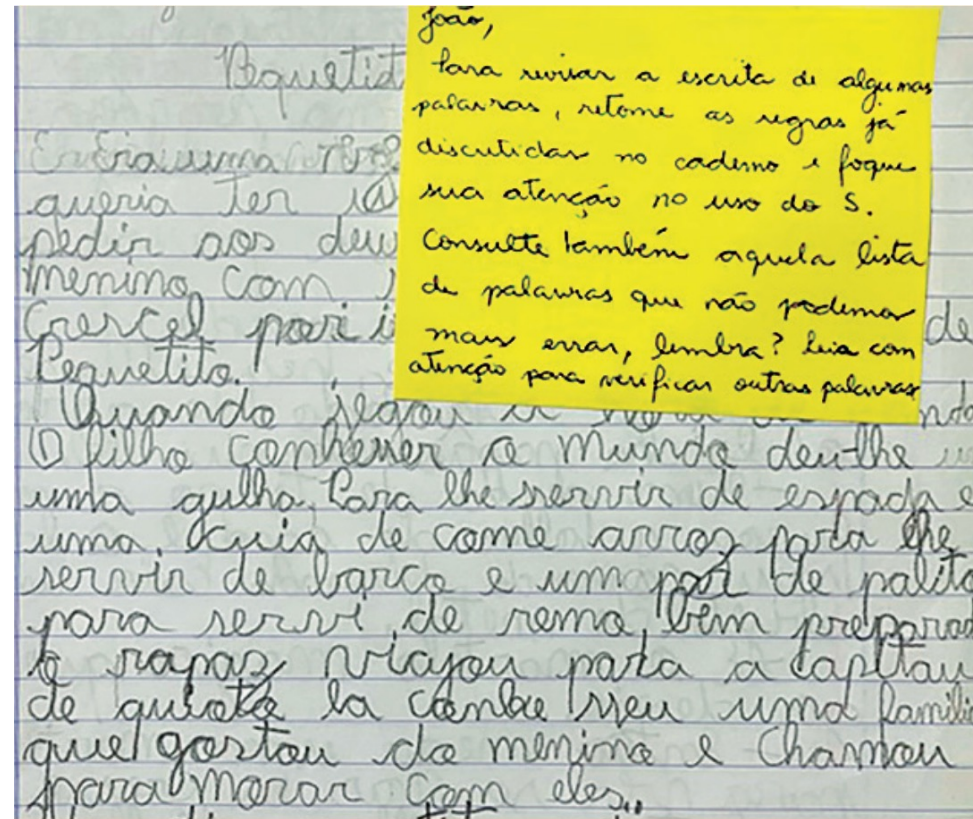 Pequetit
João,
Para revisar a escrita de algumas
palavras, retome as regras já
discutidas no caderno e foque
sua atenção no uso do S.
Consulte também aquela lista
de palavras que não podemos
mais errar, lembra? Leia com
atenção para verificar outras palavras
Era uma
queria ter
pedir aos deu
menino com
Crescel por i de
Pequetito.
Quando jegou
O filho conhesser o mundo deu-lhe
uma gulha. Para lhe servir de espada e
uma. Cuia de come arroz para lhe
servir de barco e um par de palito
para servi. de remo, bem preparad
o rapaz viajou para a capitau
de quioto la conhe seu uma famili
que gostou do menino e chamou
para morar com eles..